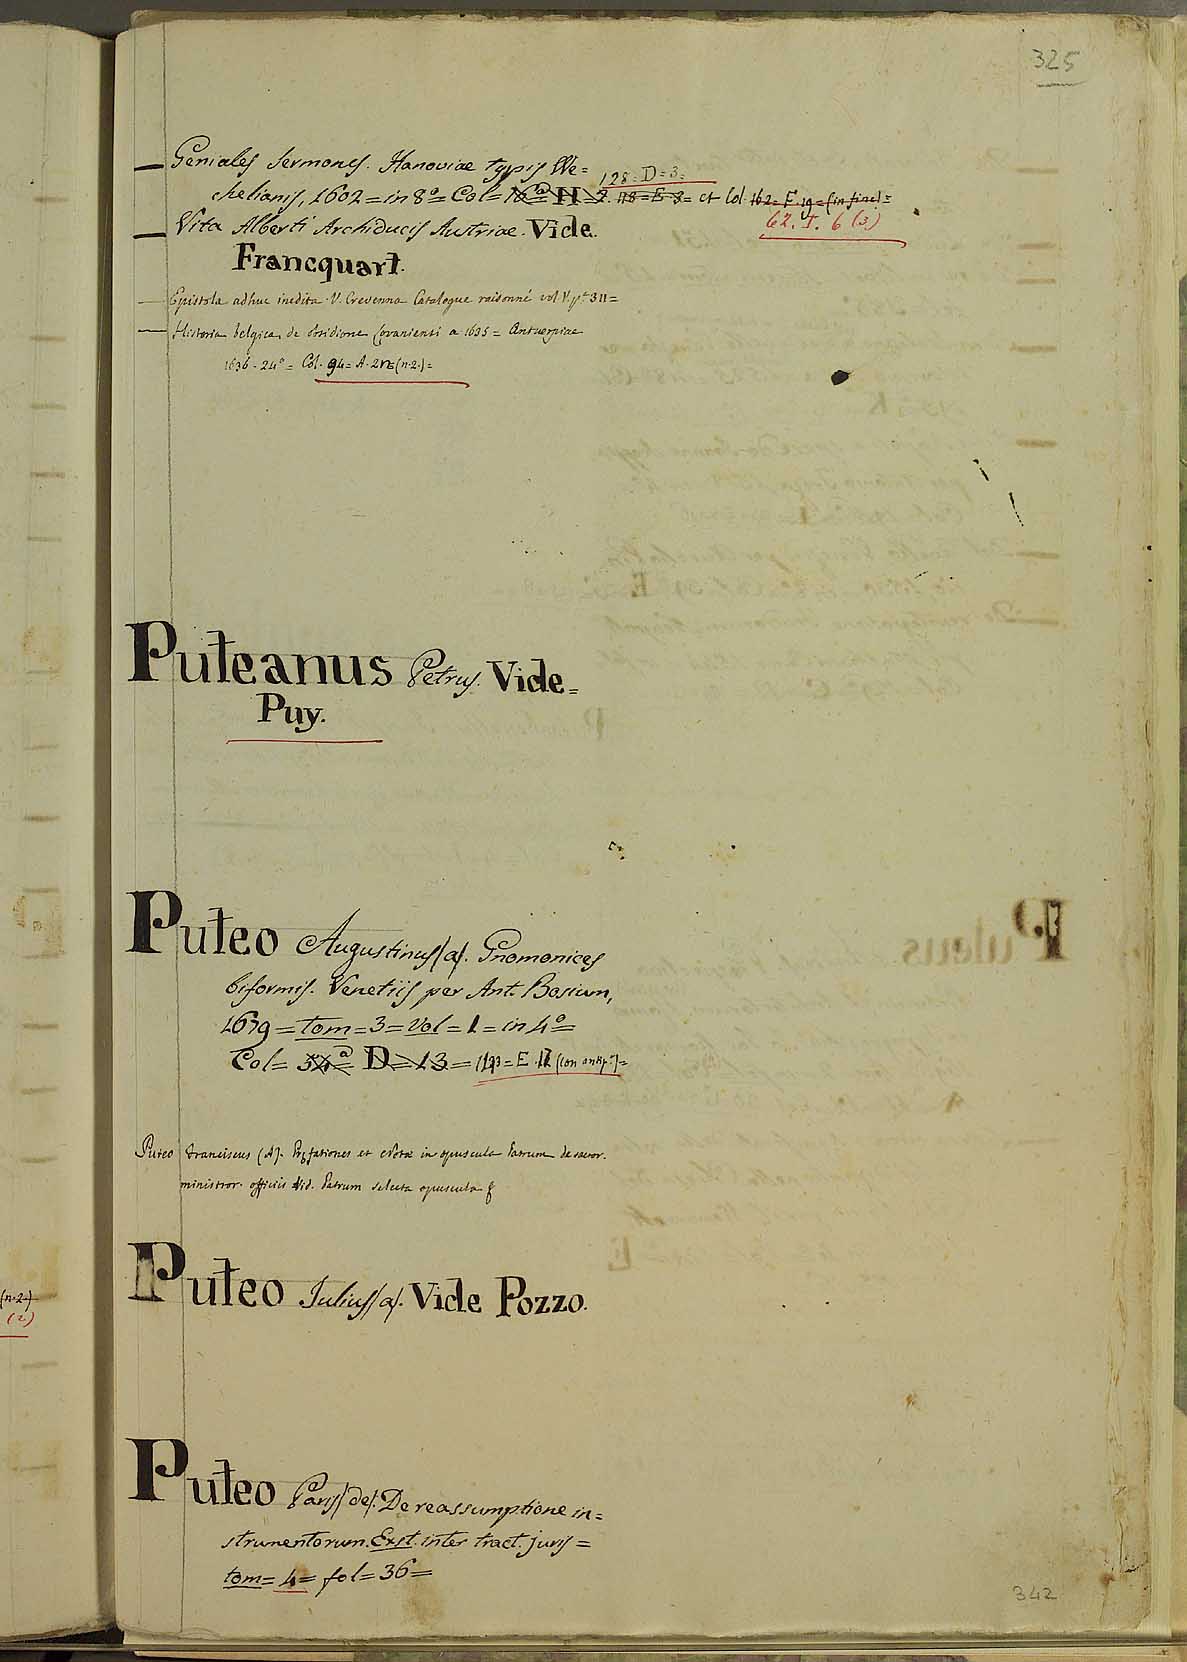 325
Geniales Sermones. Hanoviae typis We=
128=D=3=
chelianis, 1602=in 8º=Col=16ª=H=2. 118=E=3= et Col. 162=F.19=(in fine)=
62. I. 6 (3)
Vita Alberti Archiducis Austriae. Vide
Francquart.
Epistola adhuc inedita. V. Crevenna Catalogue raisonné vol. V. pº 311=
Historia belgica, de obsidione Lovaniensi a 1635= Antuerpiae
1636. 24º= Col. 94= A. (n. 2.)=
Puteanus Petrus. Vide=
Puy.
Puteo Augustinus/a/. Gnomonices
biformis. Venetiis per Ant. Bosium,
1679=tom=3=Vol=1=in 4º=
Col= D=13= =E.
Puteo Franciscus (A). Praefationes et Notae in opuscula Patrum de sacror.
ministror. officiis Vid. Patrum selecta opuscula
Puteo Julius/a/. Vide Pozzo.
Puteo Paris/de/. De reassumptione in=
strumentorum. Exst. inter tract. juris=
tom=4=fol=36=
342
(n.2.)
(2)